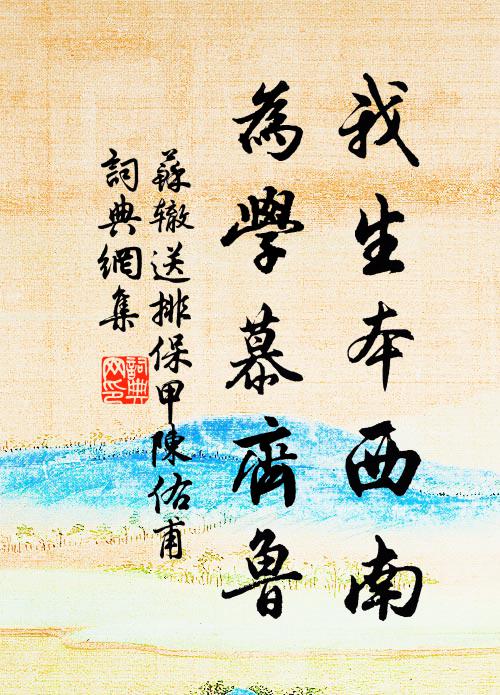 我生本西南
為學慕齊魯
蘇轍送排保甲陳佑甫
詞典網集
詞典网印